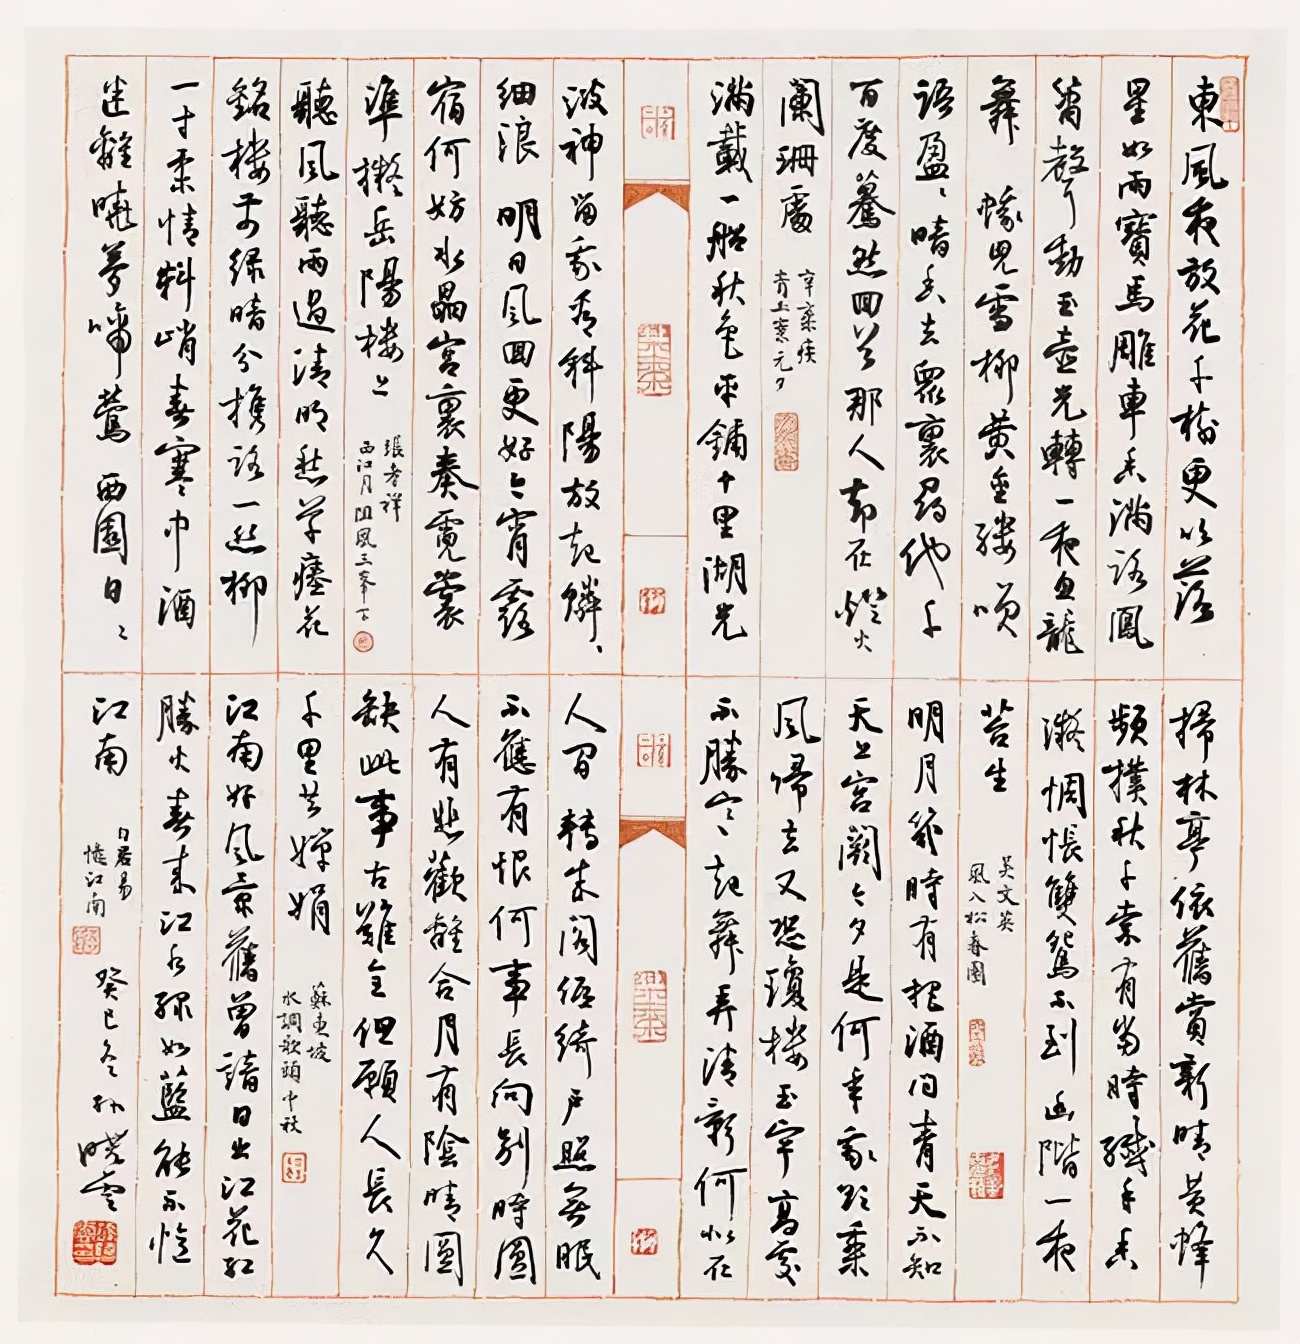 東風夜放花千樹更吹落
星如雨寶馬雕車香滿路鳳
簫聲動玉壺光轉一夜魚龍
舞 蛾兒雪柳黃金縷笑
語盈〻暗香去衆裏尋他千
百度驀然回首那人却在燈火
闌珊處
辛棄疾
青玉案元夕
滿載一船秋色平鋪十里湖光
波神留我看斜陽放起鱗〻
細浪 明日風回更好今宵露
宿何妨水晶宮裏奏霓裳
準擬岳陽樓上
張孝祥
西江月阻風三峯下
聽風聽雨過清明愁草瘞花
銘樓前綠暗分攜路一絲柳
一寸柔情料峭春寒中酒
迷離曉夢啼鶯 西園日〻
掃林亭依舊賞新晴黃蜂
頻撲秋千索有當時纖手香
凝惆悵雙鴛不到幽階一夜
苔生
吳文英
風入松春園
明月幾時有把酒問青天不知
天上宮闕今夕是何年我欲乘
風歸去又恐瓊樓玉宇高處
不勝寒起舞弄清影何似在
人間 轉朱閣低綺戶照無眠
不應有恨何事長向別時圓
人有悲歡離合月有陰晴圓
缺此事古難全但願人長久
千里共嬋娟
蘇東坡
水調歌頭中秋
江南好風景舊曾諳日出江花紅
勝火春來江水綠如藍能不憶
江南
白居易
憶江南
癸巳冬 孫曉雲